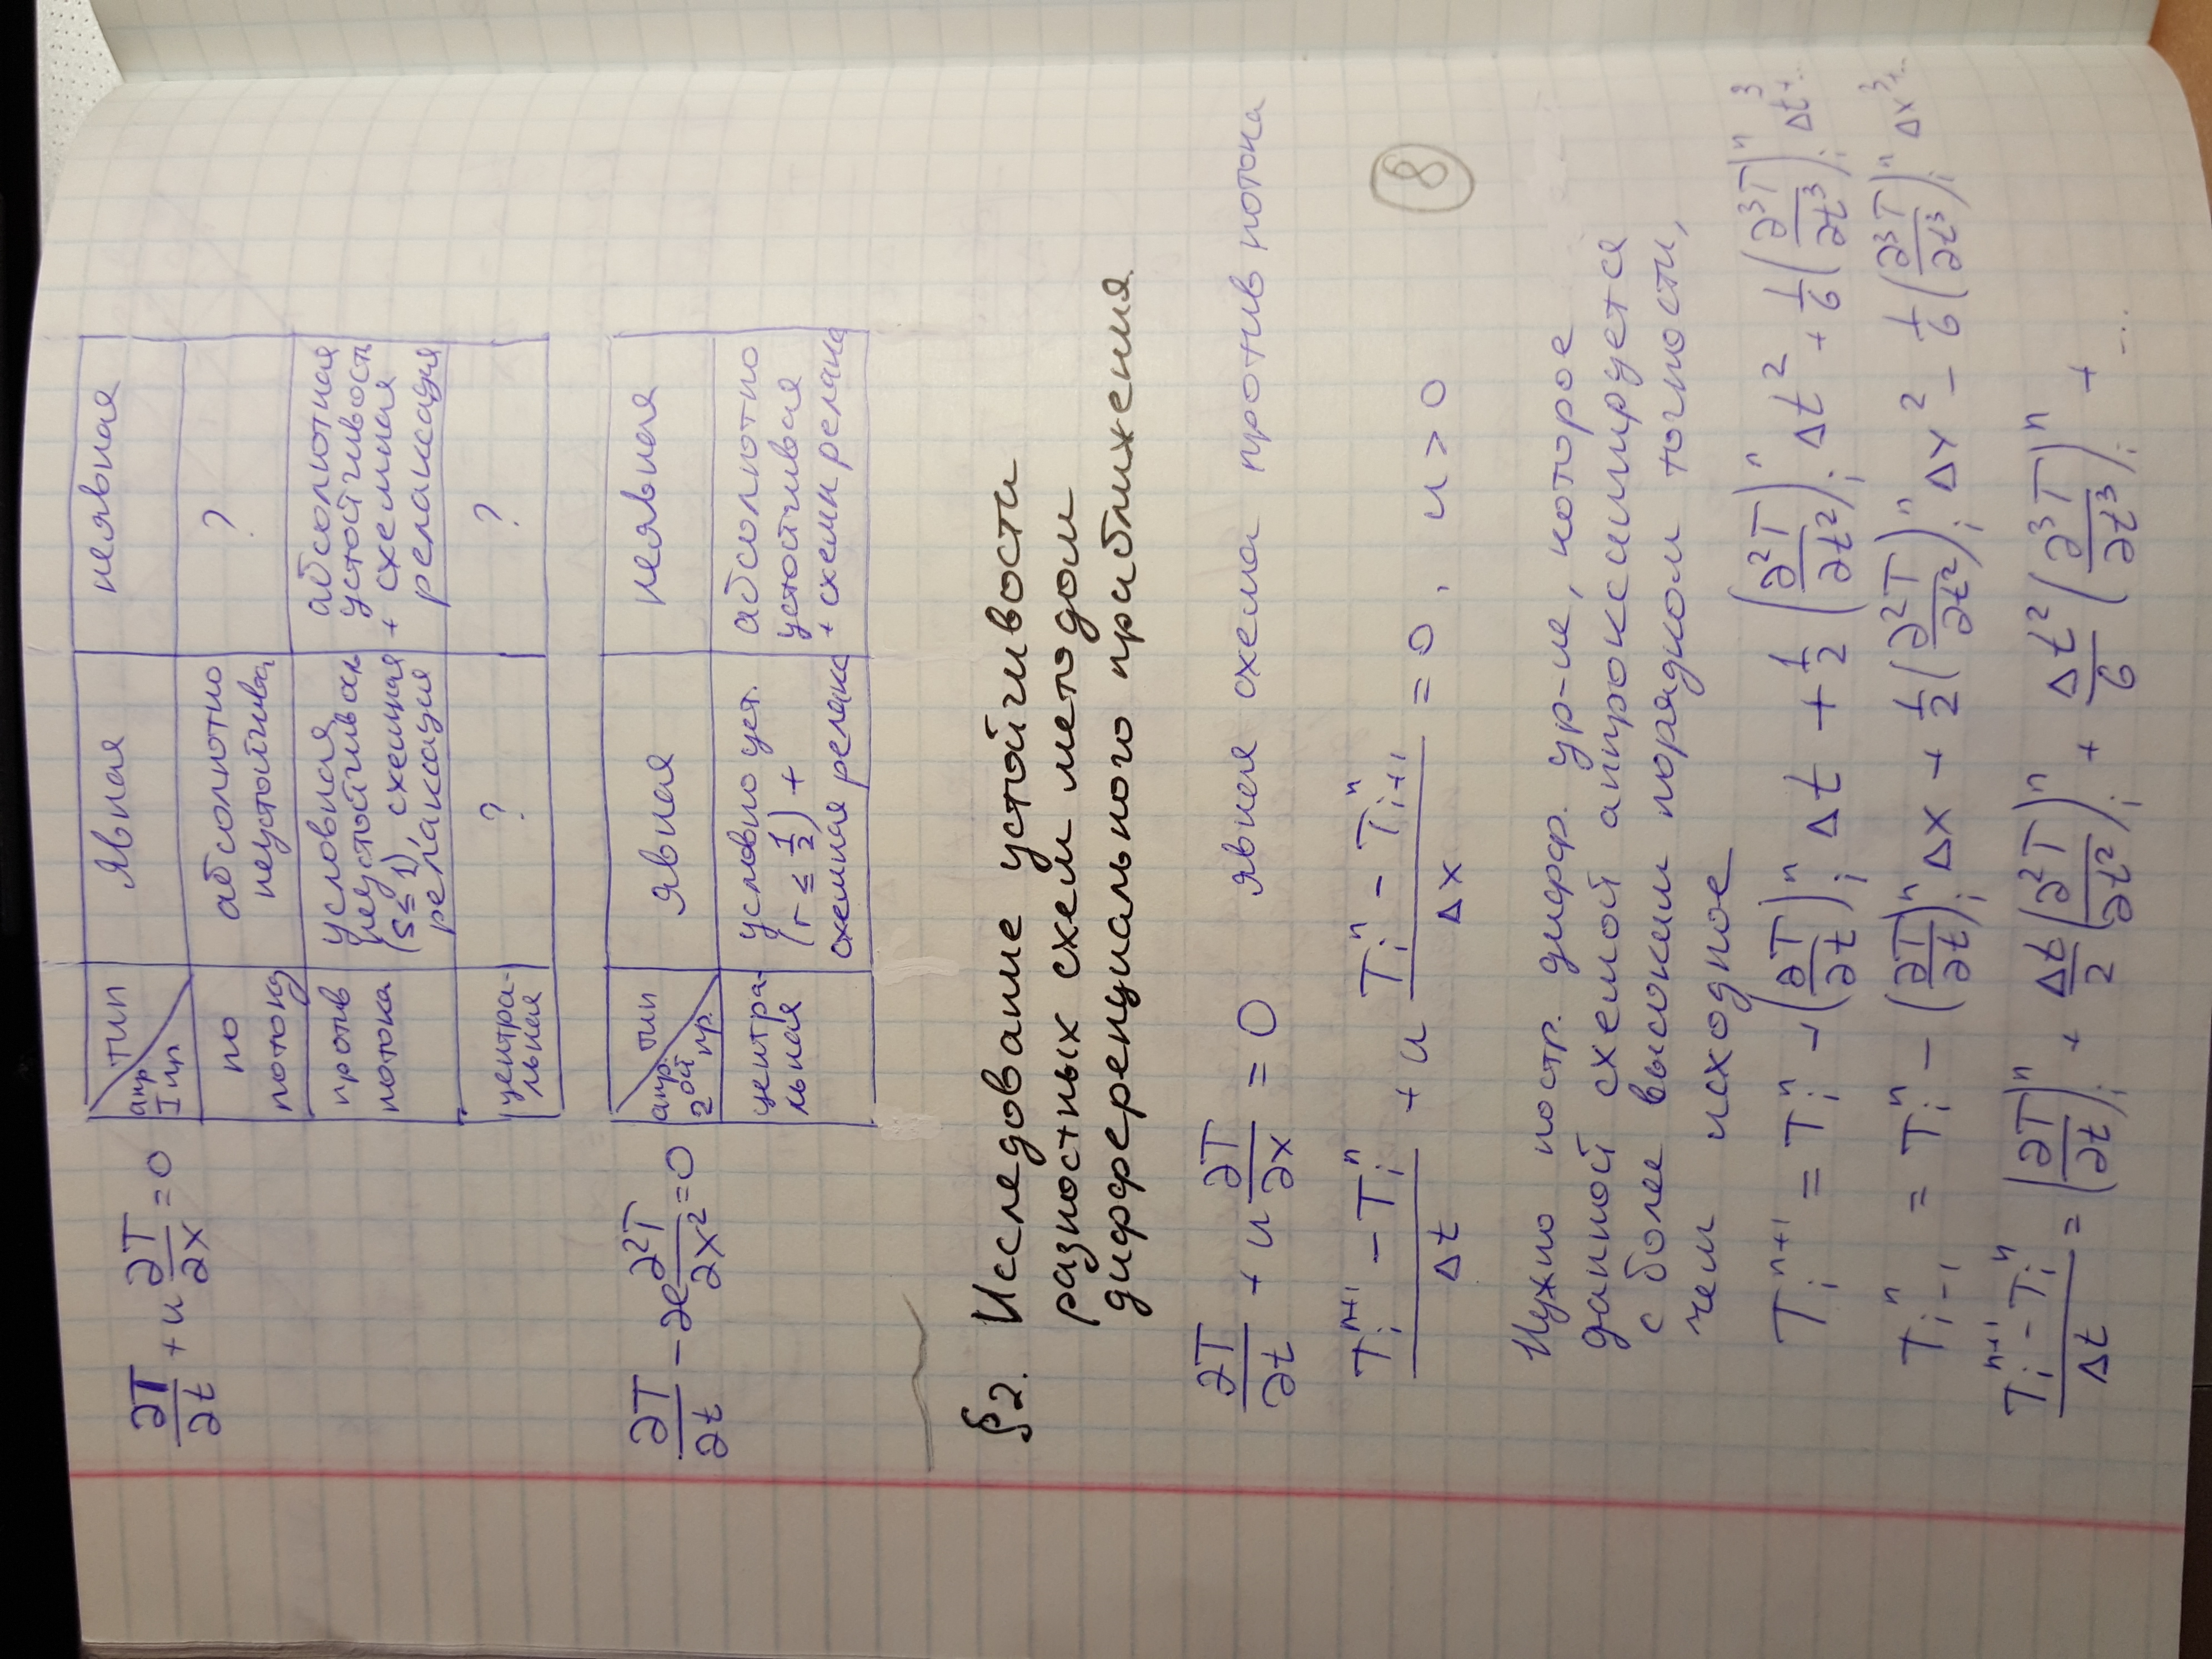 ∂T/∂t + u ∂T/∂x = 0
тип
апр
I пр
явная
неявная
по
потоку
абсолютно
неустойчива
?
против
потока
условная
неустойчивость
(s ≤ 1), схемная
релаксация
абсолютная
устойчивость
+ схемная
релаксация
центра-
льная
?
?
∂T/∂t - æ ∂²T/∂x² = 0
тип
апр.
2ой пр.
явная
неявная
центра-
льная
условно уст.
(r ≤ 1/2) +
схемная релакс
абсолютно
устойчивая
+ схемн релакс
§2. Исследование устойчивости
разностных схем методом
дифференциального приближения.
∂T/∂t + u ∂T/∂x = 0 явная схема против потока
(T_i^{n+1} - T_i^n)/Δt + u (T_i^n - T_{i+1}^n)/Δx = 0, u > 0
8
Нужно постр. дифф. ур-ие, которое
данной схемой аппроксимируется
с более высоким порядком точности,
чем исходное
T_i^{n+1} = T_i^n + (∂T/∂t)_i^n Δt + 1/2 (∂²T/∂t²)_i^n Δt² + 1/6 (∂³T/∂t³)_i^n Δt³+...
T_{i-1}^n = T_i^n - (∂T/∂t)_i^n Δx + 1/2 (∂²T/∂t²)_i^n Δx² - 1/6 (∂³T/∂t³)_i^n Δx³+...
(T_i^{n+1} - T_i^n)/Δt = (∂T/∂t)_i^n + Δt/2 (∂²T/∂t²)_i^n + Δt²/6 (∂³T/∂t³)_i^n + ...